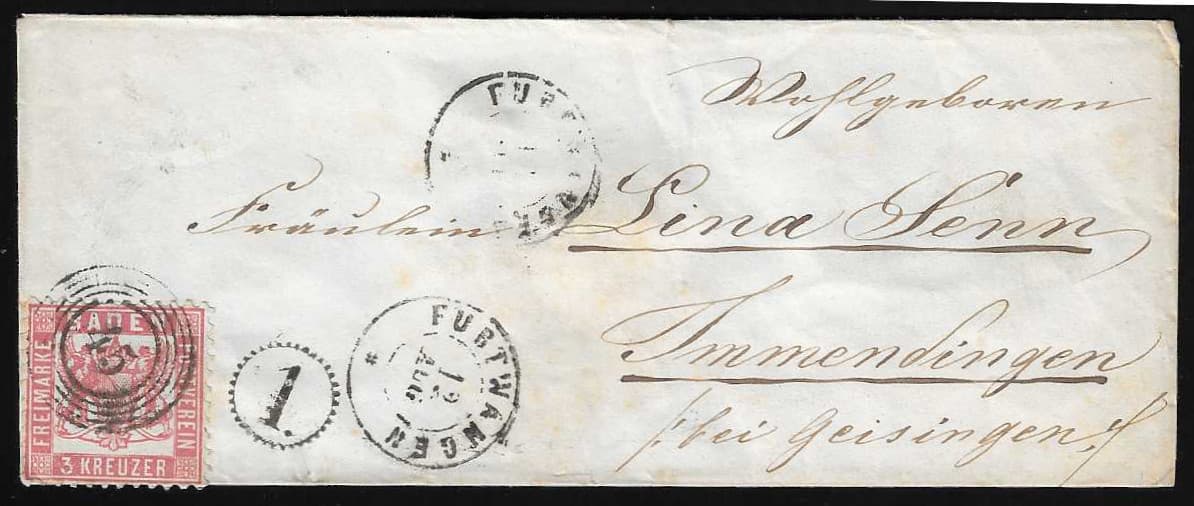 Wohlgeboren
Fräulein Lina Senn
Immendingen
/: bei Geisingen :/
FURTWANGEN
12
AUG
1.
45
BADEN
FREIMARKE
POSTVEREIN
3 KREUZER